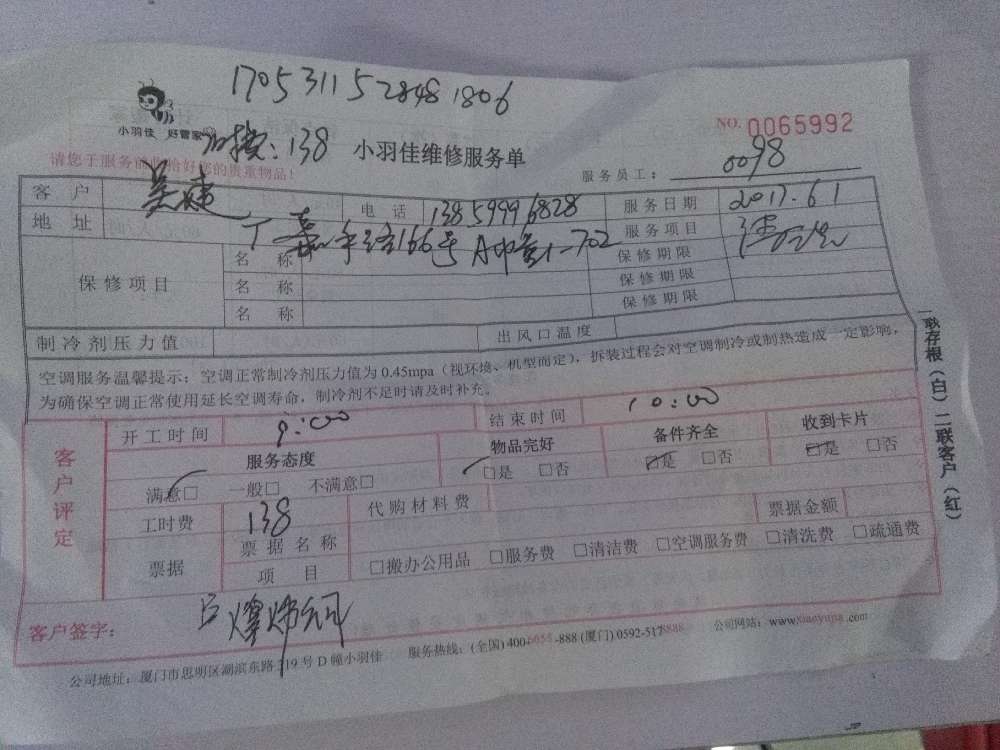 1705311528481806
小羽佳 好管家
138
小羽佳维修服务单
NO. 0065992
请您于服务前收拾好您的贵重物品!
服务员工: 0098
客户 吴 电话 13859996828 服务日期 2017.6 1
地址 166号 1-702 服务项目
保修项目
名称 保修期限
名称 保修期限
名称 保修期限
制冷剂压力值 出风口温度
空调服务温馨提示:空调正常制冷剂压力值为0.45mpa(视环境、机型而定),拆装过程会对空调制冷或制热造成一定影响,
为确保空调正常使用延长空调寿命,制冷剂不足时请及时补充。
客户评定
开工时间 9:00 结束时间 10:00
服务态度 物品完好 备件齐全 收到卡片
满意□ 一般□ 不满意□ □是 □否 □是 □否 □是 □否
工时费 138 代购材料费 票据金额
票据 票据名称
项目 □搬办公用品 □服务费 □清洁费 □空调服务费 □清洗费 □疏通费
客户签字:
公司地址:厦门市思明区湖滨东路319号D幢小羽佳 服务热线:(全国)400-6655-888 (厦门) 0592-5178888 公司网站:www.xiaoyujia.com
一联存根(白)二联客户(红)